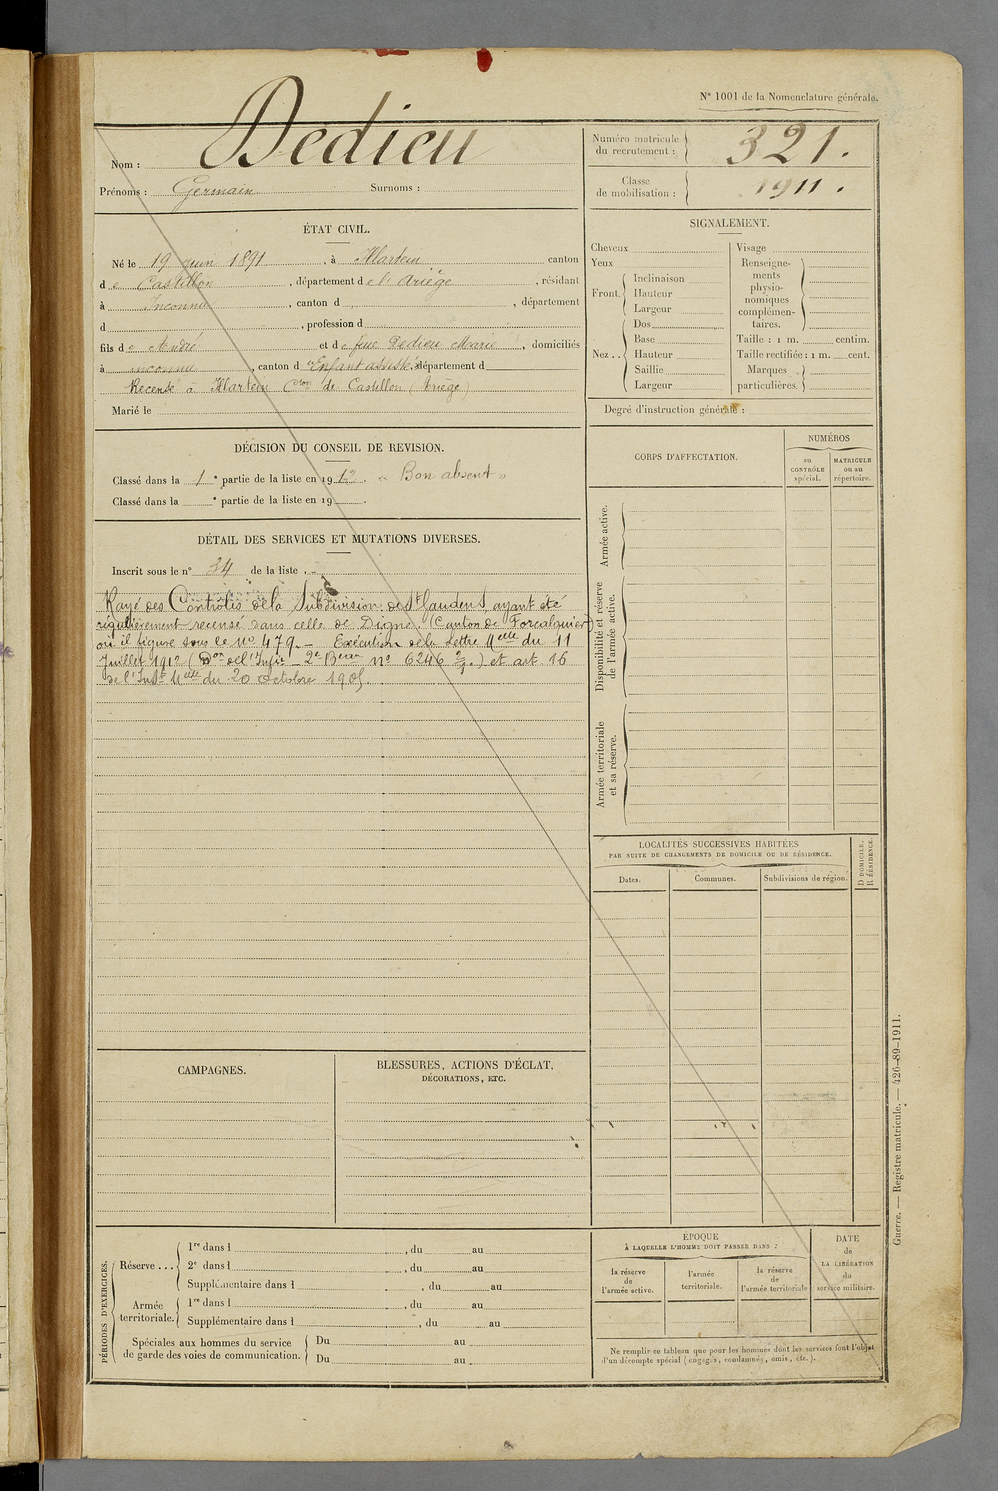 N° 1001 de la Nomenclature générale.
Nom : Dedieu
Prénoms : Germain Surnoms :
Numéro matricule du recrutement : 321.
Classe de mobilisation : 1911.
ÉTAT CIVIL.
Né le 19 juin 1891, à Illartein canton
de Castillon, département de l'Ariège, résidant
à Inconnu, canton d , département
d , profession d
fils de André et de feue Dedieu Marie, domiciliés
à inconnu, canton d Enfant assisté, département d
Recensé à Illartein Cton de Castillon (Ariège)
Marié le
DÉCISION DU CONSEIL DE REVISION.
Classé dans la 1e partie de la liste en 1912. « Bon absent »
Classé dans la e partie de la liste en 19 .
DÉTAIL DES SERVICES ET MUTATIONS DIVERSES.
Inscrit sous le n° 34 de la liste .
Rayé des Contrôles de la Subdivision de St Gaudens, ayant été
régulièrement recensé dans celle de Digne. (Canton de Forcalquier)
où il figure sous le no 479. — Exécution de la lettre Melle du 11
Juillet 1912 (Don de l'Infie — 2e Beau no 6246 2/7.) et art 16
de l'Inst Melle du 20 octobre 1905.
SIGNALEMENT.
Cheveux
Yeux
Front. Inclinaison
Hauteur
Largeur
Nez .. Dos
Base
Hauteur
Saillie
Largeur
Visage
Renseigne-
ments
physio-
nomiques
complémen-
taires.
Taille : 1 m. centim.
Taille rectifiée : 1 m. cent.
Marques
particulières.
Degré d'instruction générale :
CORPS D'AFFECTATION.
NUMÉROS
au CONTRÔLE spécial.
MATRICULE ou au répertoire.
Armée active.
Disponibilité et réserve de l'armée active.
Armée territoriale et sa réserve.
LOCALITÉS SUCCESSIVES HABITÉES
PAR SUITE DE CHANGEMENTS DE DOMICILE OU DE RÉSIDENCE.
Dates.
Communes.
Subdivisions de région.
D DOMICILE.
R RÉSIDENCE.
CAMPAGNES.
BLESSURES, ACTIONS D'ÉCLAT,
DÉCORATIONS, ETC.
PÉRIODES D'EXERCICES.
Réserve ... 1re dans l , du au
2e dans l , du au
Supplémentaire dans l , du au
Armée territoriale. 1re dans l , du au
Supplémentaire dans l , du au
Spéciales aux hommes du service
de garde des voies de communication. Du au
Du au
ÉPOQUE
À LAQUELLE L'HOMME DOIT PASSER DANS :
la réserve de l'armée active.
l'armée territoriale.
la réserve de l'armée territoriale
DATE de LA LIBÉRATION du service militaire.
Ne remplir ce tableau que pour les hommes dont les services font l'objet
d'un décompte spécial (engagés, condamnés, omis, etc.).
Guerre. — Registre matricule. — 426-89-1911.